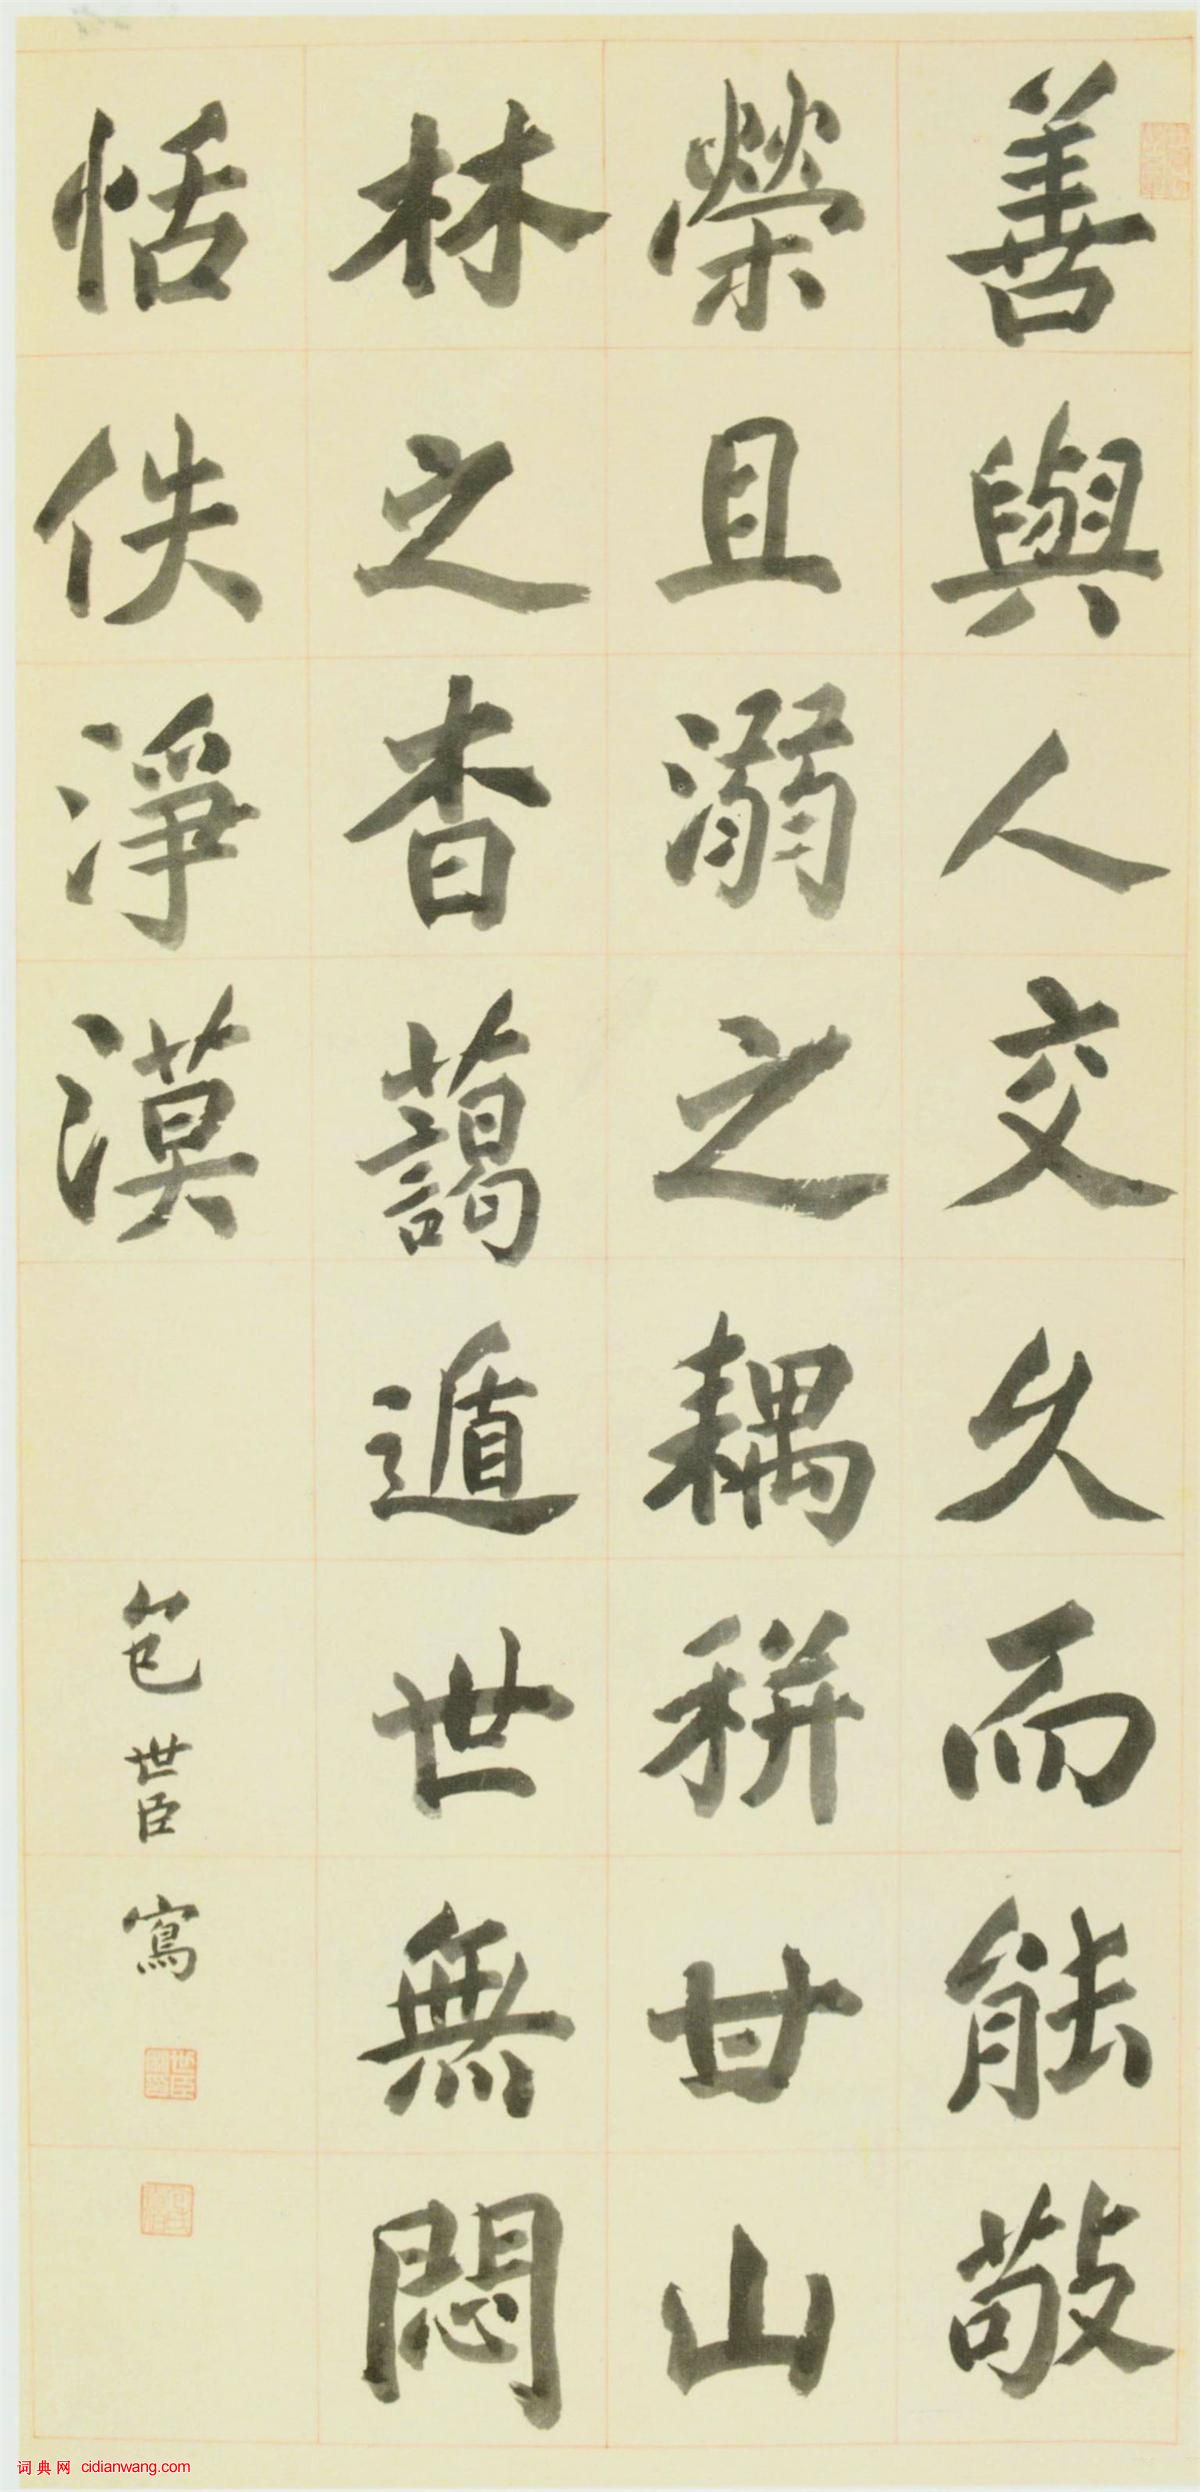 善與人交久而能敬
榮且溺之耦稱甘山
林之杳藹遁世無悶
恬佚淨漠
包世臣寫
世臣
词典网 cidianwang.com